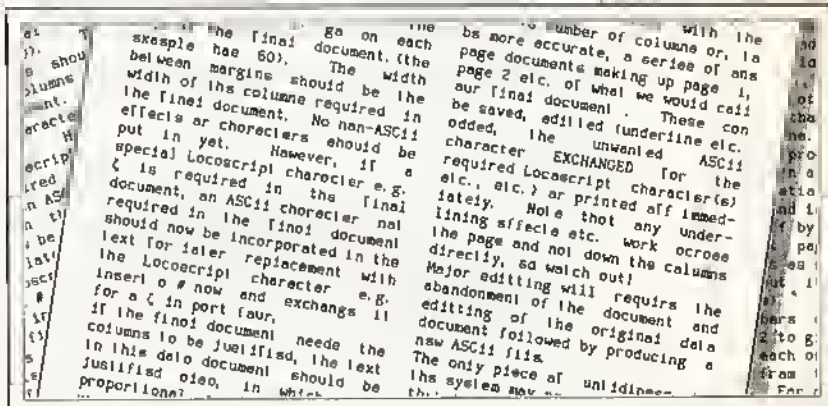 the final document, (the
example has 60). The width
between margins should be the
width of the columns required in
the final document. No non-ASCii
effects or characters should be
put in yet. However, if a
special Locoscript character e.g.
ζ is required in the final
document, an ASCii character not
required in the final document
should now be incorporated in the
text for later replacement with
the Locoscript character e.g.
insert a # now and exchange it
for a ζ in part four.
if the final document needs the
columns to be justified, the text
in this data document should be
justified also, in which
proportional
number of columns or, to
be more accurate, a series of ans
page documents making up page 1,
page 2 etc. of what we would call
our final document. These can
be saved, editted (underline etc.
added, the unwanted ASCii
character EXCHANGED for the
required Locoscript character(s)
etc., etc.) or printed off immed-
iately. Note that any under-
lining effects etc. work across
the page and not down the columns
directly, so watch out!
Major editting will require the
abandonment of the document and
editting of the original data
document followed by producing a
new ASCii file.
The only piece of untidiness
the system may